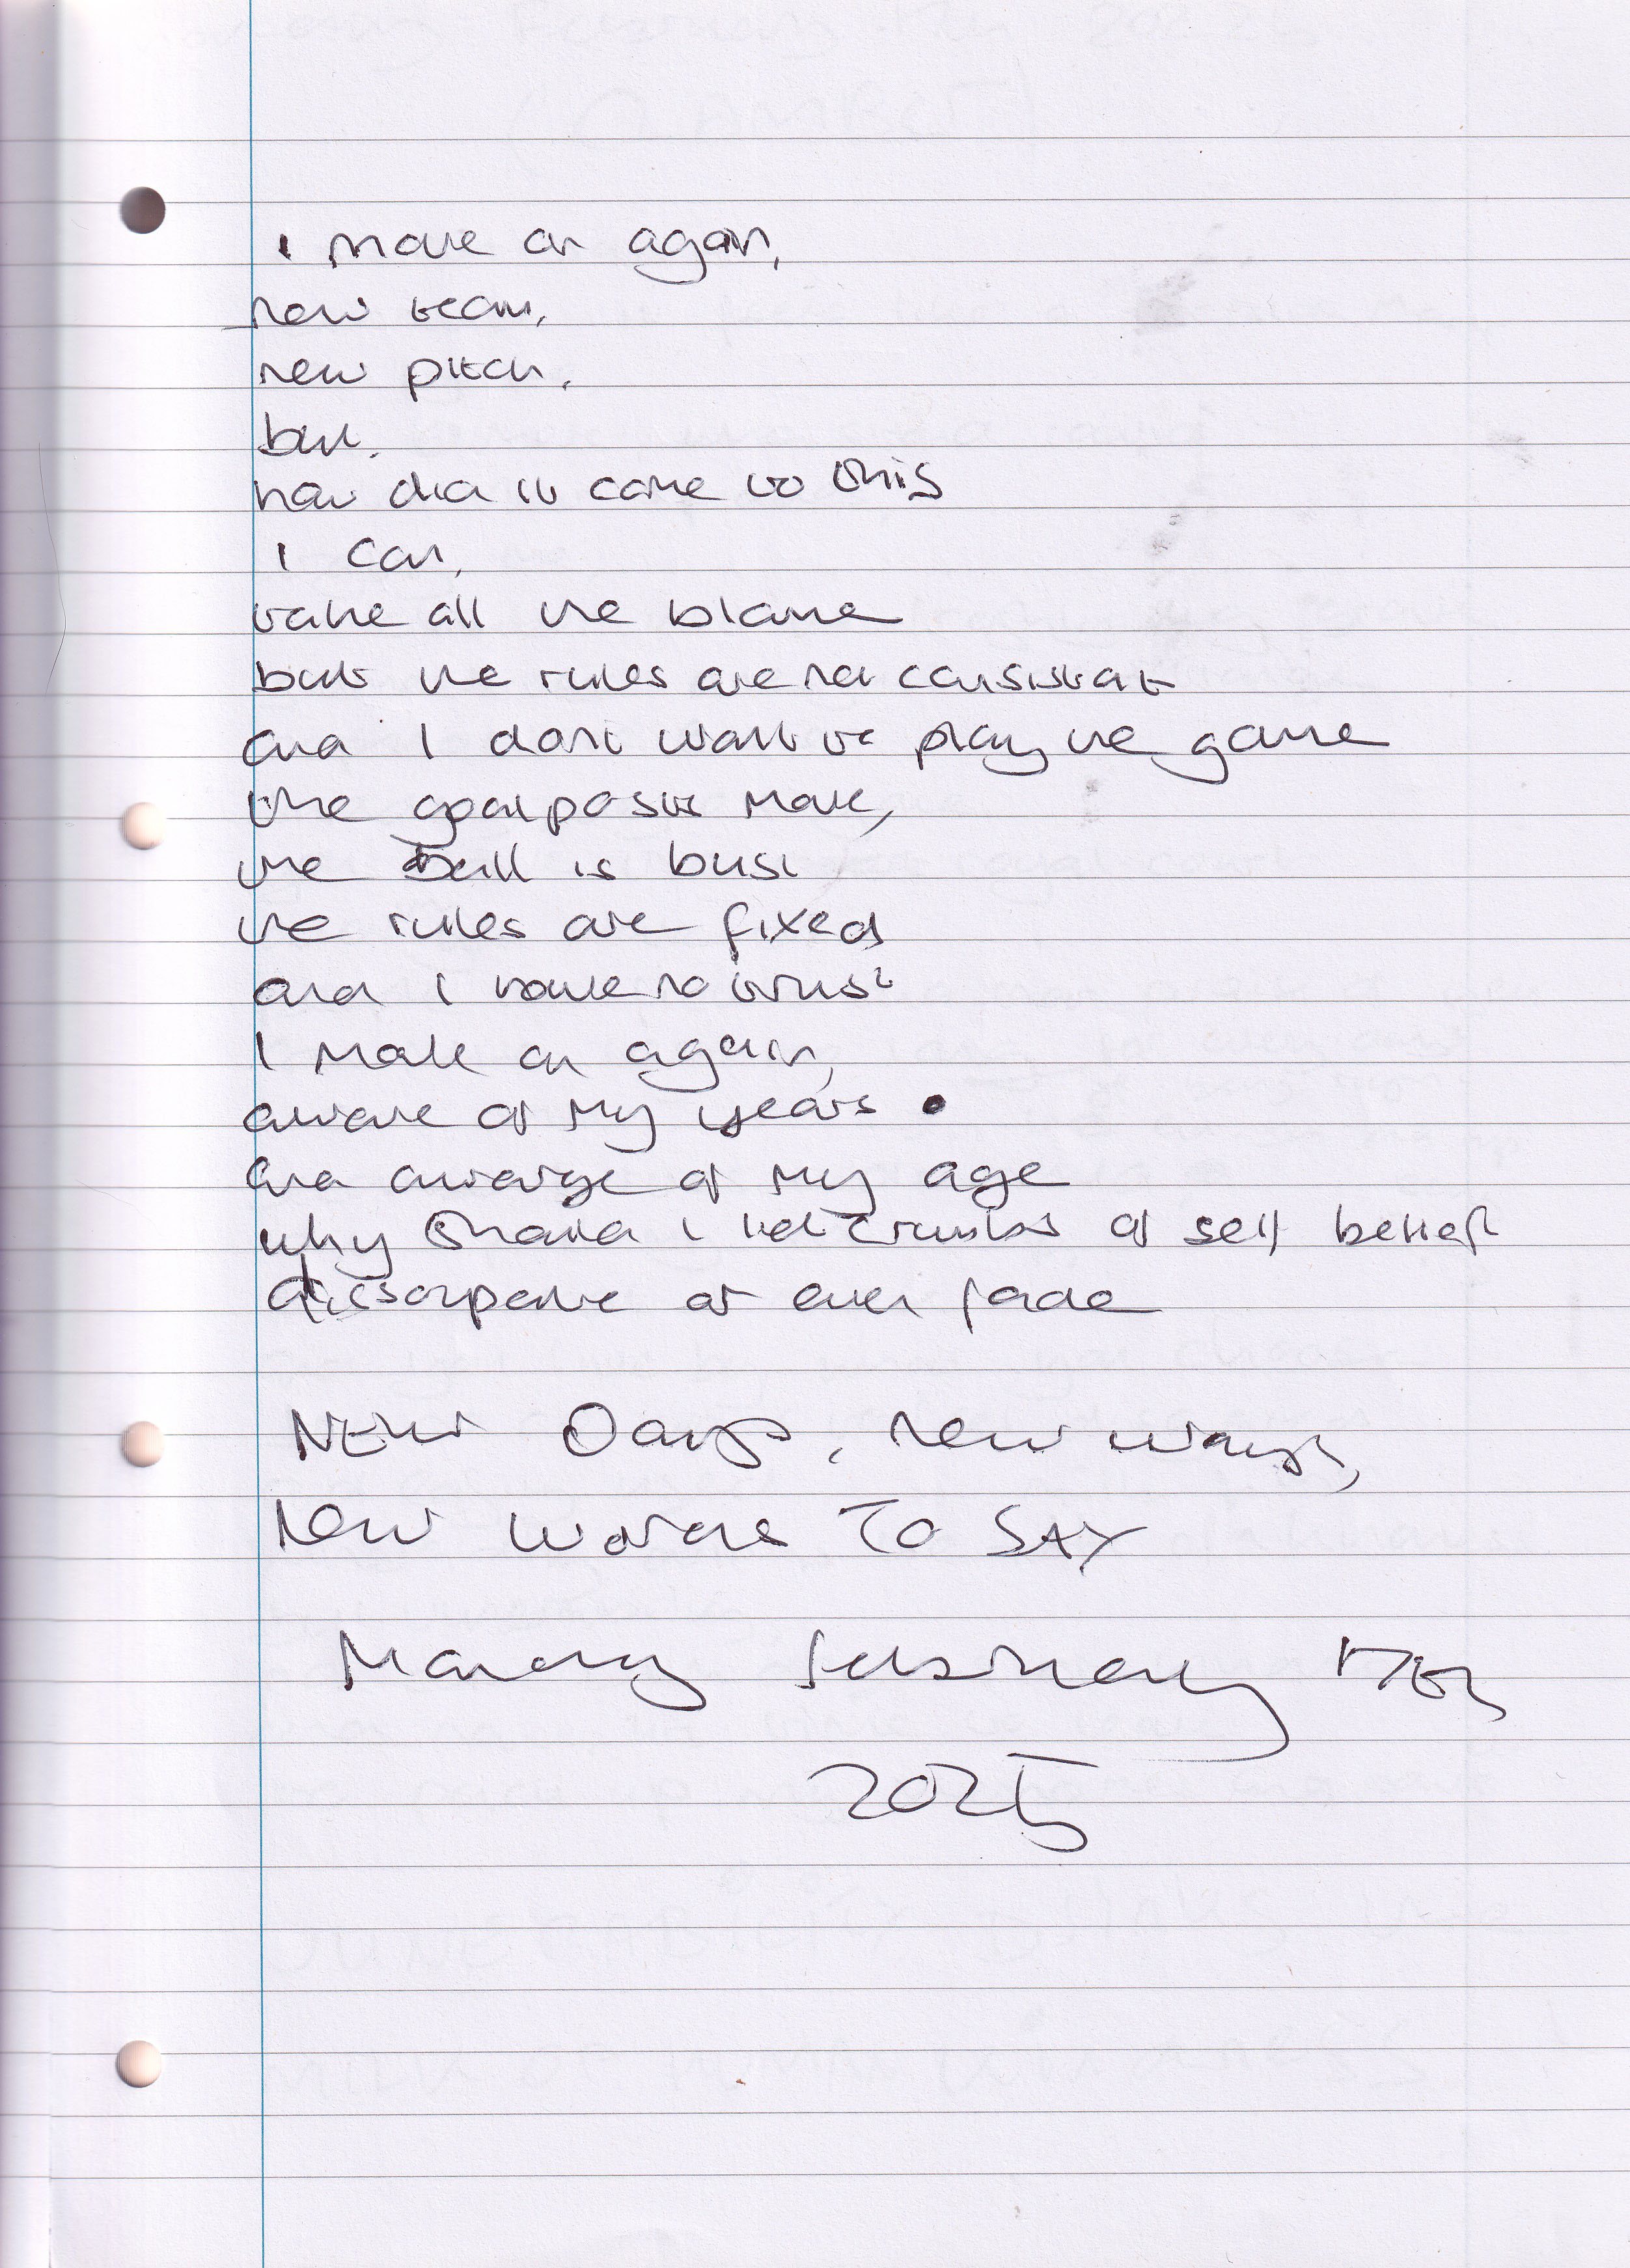 I move on again,
new team,
new pitch,
but,
how did it come to this
I can,
take all the blame
but the rules are not consistant
and I dont want to play the game
the goalposts move,
the ball is bust
the rules are fixed
and I have no trust
I move on again,
aware of my years
and average of my age
why should I let crumbs of self belief
dissapear or even fade
NEW Days, new ways,
new words TO SAY
Monday February 17th
2025